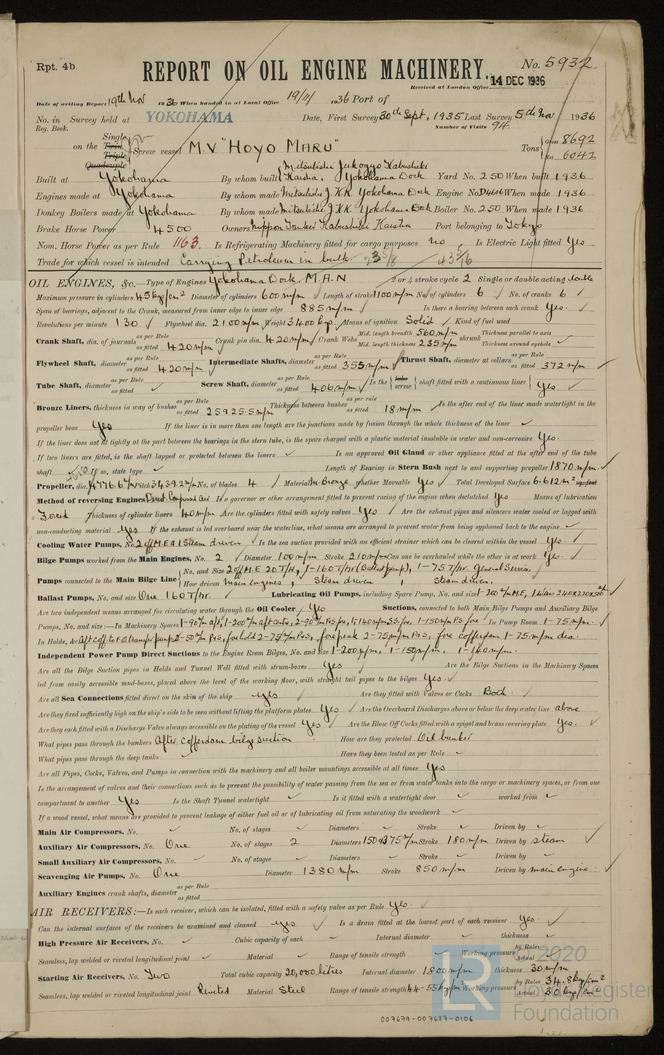 Rpt. 4b.
REPORT ON OIL ENGINE MACHINERY.
No. 5932
Received at London Office 14 DEC 1936
Date of writing Report 19th Nov 1936 When handed in at Local Office 19/11/1936 Port of YOKOHAMA
No. in Survey held at Date, First Survey 30th Sept, 1935 Last Survey 5th Nov 1936
Reg. Book. Number of Visits 94
on the Single Twin Triple Quadruple Screw vessel M.V "HOYO MARU" Tons 8692 6042
Built at Yokohama By whom built Mitsubishi Jukogyo Kabushiki Kaisha, Yokohama Dock Yard No. 250 When built 1936
Engines made at Yokohama By whom made Mitsubishi J.K.K. Yokohama Dock Engine No. When made 1936
Donkey Boilers made at Yokohama By whom made Mitsubishi J.K.K. Yokohama Dock Boiler No. 250 When made 1936
Brake Horse Power 4500 Owners Nippon Tanker Kabushiki Kaisha Port belonging to Tokyo
Nom. Horse Power as per Rule 1163 Is Refrigerating Machinery fitted for cargo purposes no Is Electric Light fitted Yes
Trade for which vessel is intended Carrying Petroleum in bulk 23 5/8 43 5/16
OIL ENGINES, &c.—Type of Engines Yokohama Dock M.A.N 2 or 4 stroke cycle 2 Single or double acting double
Maximum pressure in cylinders 45 kg/cm² Diameter of cylinders 600 m/m Length of stroke 1100 m/m No. of cylinders 6 No. of cranks 6
Span of bearings, adjacent to the Crank, measured from inner edge to inner edge 885 m/m Is there a bearing between each crank Yes
Revolutions per minute 130 Flywheel dia. 2100 m/m Weight 3400 kg. Means of ignition Solid Kind of fuel used
Crank Shaft, dia. of journals as per Rule as fitted 420 m/m Crank pin dia. 420 m/m Crank Webs Mid. length breadth 560 m/m Mid. length thickness 235 m/m shrunk Thickness parallel to axis Thickness around eyehole
Flywheel Shaft, diameter as per Rule as fitted 420 m/m Intermediate Shafts, diameter as per Rule as fitted 355 m/m Thrust Shaft, diameter at collars as per Rule as fitted 372 m/m
Tube Shaft, diameter as per Rule as fitted Screw Shaft, diameter as per Rule as fitted 406 m/m Is the tube screw shaft fitted with a continuous liner Yes
Bronze Liners, thickness in way of bushes as per Rule as fitted Thickness between bushes as per Rule as fitted 18 m/m Is the after end of the liner made watertight in the
propeller boss Yes If the liner is in more than one length are the junctions made by fusion through the whole thickness of the liner
If the liner does not fit tightly at the part between the bearings in the stern tube, is the space charged with a plastic material insoluble in water and non-corrosive Yes.
If two liners are fitted, is the shaft lapped or protected between the liners Is an approved Oil Gland or other appliance fitted at the after end of the tube
shaft If so, state type Length of Bearing in Stern Bush next to and supporting propeller 1870 m/m
Propeller, dia. No. of blades 4 Material M. bronze whether Moveable Yes Total Developed Surface 6.612 m² sq. feet
Method of reversing Engines Direct Compressed Air Is a governor or other arrangement fitted to prevent racing of the engine when declutched Yes Means of lubrication
Forced Thickness of cylinder liners 40 m/m Are the cylinders fitted with safety valves Yes Are the exhaust pipes and silencers water cooled or lagged with
non-conducting material Yes If the exhaust is led overboard near the waterline, what means are arranged to prevent water being syphoned back to the engine
Cooling Water Pumps, No. 2 off M.E & 1 Steam driven Is the sea suction provided with an efficient strainer which can be cleared within the vessel Yes
Bilge Pumps worked from the Main Engines, No. 2 Diameter 100 m/m Stroke 210 m/m Can one be overhauled while the other is at work Yes
Pumps connected to the Main Bilge Line No. and Size 2 off M.E 20 T/H, 1-160 T/hr (Ballast pump), 1-75 T/hr. General Service.
How driven main engines, Steam driven, steam driven.
Ballast Pumps, No. and size One 160 T/hr. Lubricating Oil Pumps, including Spare Pump, No. and size
Are two independent means arranged for circulating water through the Oil Cooler Yes Suctions, connected to both Main Bilge Pumps and Auxiliary Bilge
Pumps, No. and size:—In Machinery Spaces In Pump Room 1-75 m/m.
In Holds, &c.
Independent Power Pump Direct Suctions to the Engine Room Bilges, No. and size 1-200 m/m, 1-150 m/m, 1-140 m/m.
Are all the Bilge Suction pipes in Holds and Tunnel Well fitted with strum-boxes Yes Are the Bilge Suctions in the Machinery Spaces
led from easily accessible mud-boxes, placed above the level of the working floor, with straight tail pipes to the bilges Yes
Are all Sea Connections fitted direct on the skin of the ship Yes Are they fitted with Valves or Cocks Both
Are they fixed sufficiently high on the ship's side to be seen without lifting the platform plates Yes Are the Overboard Discharges above or below the deep water line above
Are they each fitted with a Discharge Valve always accessible on the plating of the vessel Yes Are the Blow Off Cocks fitted with a spigot and brass covering plate Yes.
What pipes pass through the bunkers After cofferdam bilge suction How are they protected Oil bunker
What pipes pass through the deep tanks Have they been tested as per Rule
Are all Pipes, Cocks, Valves, and Pumps in connection with the machinery and all boiler mountings accessible at all times Yes
Is the arrangement of valves and their connections such as to prevent the possibility of water passing from the sea or from water tanks into the cargo or machinery spaces, or from one
compartment to another Yes Is the Shaft Tunnel watertight Is it fitted with a watertight door worked from
If a wood vessel, what means are provided to prevent leakage of either fuel oil or of lubricating oil from saturating the woodwork
Main Air Compressors, No. No. of stages Diameters Stroke Driven by
Auxiliary Air Compressors, No. One No. of stages 2 Diameters Stroke 180 m/m Driven by steam
Small Auxiliary Air Compressors, No. No. of stages Diameters Stroke Driven by
Scavenging Air Pumps, No. One Diameter 1380 m/m Stroke 850 m/m Driven by main engine
Auxiliary Engines crank shafts, diameter as per Rule as fitted
AIR RECEIVERS:—Is each receiver, which can be isolated, fitted with a safety valve as per Rule Yes
Can the internal surfaces of the receivers be examined and cleaned yes Is a drain fitted at the lowest part of each receiver Yes
High Pressure Air Receivers, No. Cubic capacity of each Internal diameter thickness
Seamless, lap welded or riveted longitudinal joint Material Range of tensile strength Working pressure by Rules Actual
Starting Air Receivers, No. Two Total cubic capacity 20,000 litres Internal diameter 1800 m/m thickness 30 m/m
Seamless, lap welded or riveted longitudinal joint Riveted Material Steel Range of tensile strength 44-55 kg/mm Working pressure by Rules 34.8 kg/cm² Actual 30 kg/cm²
LR 2020
Lloyd's Register
Foundation
007679-007687-0106